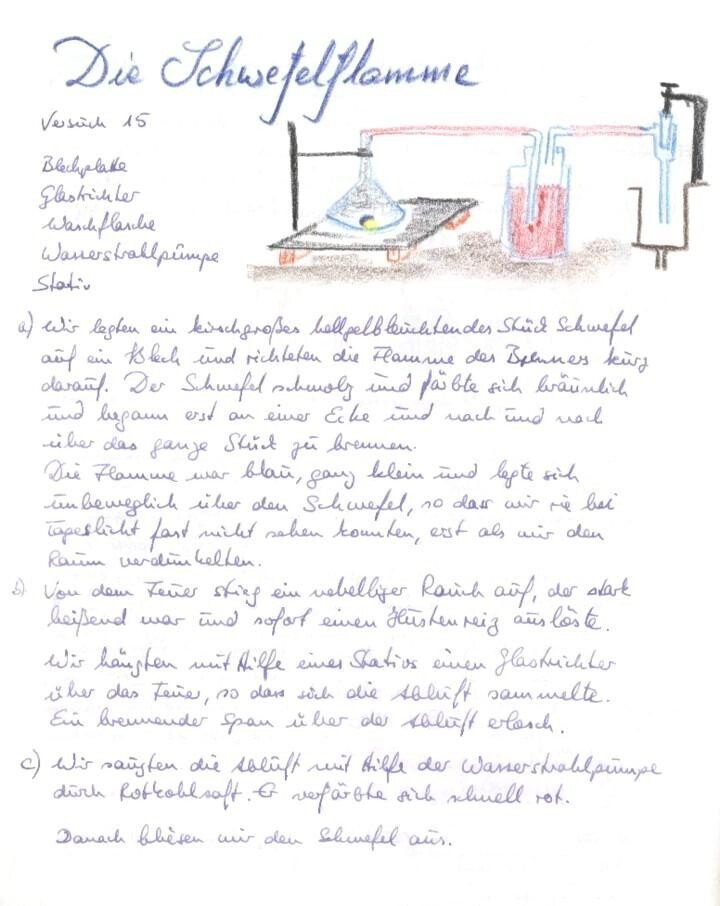 Die Schwefelflamme
Versuch 15
Blechplatte
Glastrichter
Waschflasche
Wasserstrahlpumpe
Stativ
a) Wir legten ein kirschgroßes hellgelbleuchtendes Stück Schwefel
auf ein Blech und richteten die Flamme des Brenners kurz
darauf. Der Schwefel schmolz und färbte sich bräunlich
und begann erst an einer Ecke und nach und nach
über das ganze Stück zu brennen.
Die Flamme war blau, ganz klein und legte sich
unbeweglich über den Schwefel, so dass wir sie bei
Tageslicht fast nicht sehen konnten, erst als wir den
Raum verdunkelten.
b) Von dem Feuer stieg ein nebelliger Rauch auf, der stark
beißend war und sofort einen Hustenreiz auslöste.
Wir hängten mit Hilfe eines Stativs einen Glastrichter
über das Feuer, so dass sich die Abluft sammelte.
Ein brennender Span über der Abluft erlosch.
c) Wir saugten die Abluft mit Hilfe der Wasserstrahlpumpe
durch Rotkohlsaft. Er verfärbte sich schnell rot.
Danach bliesen wir den Schwefel aus.